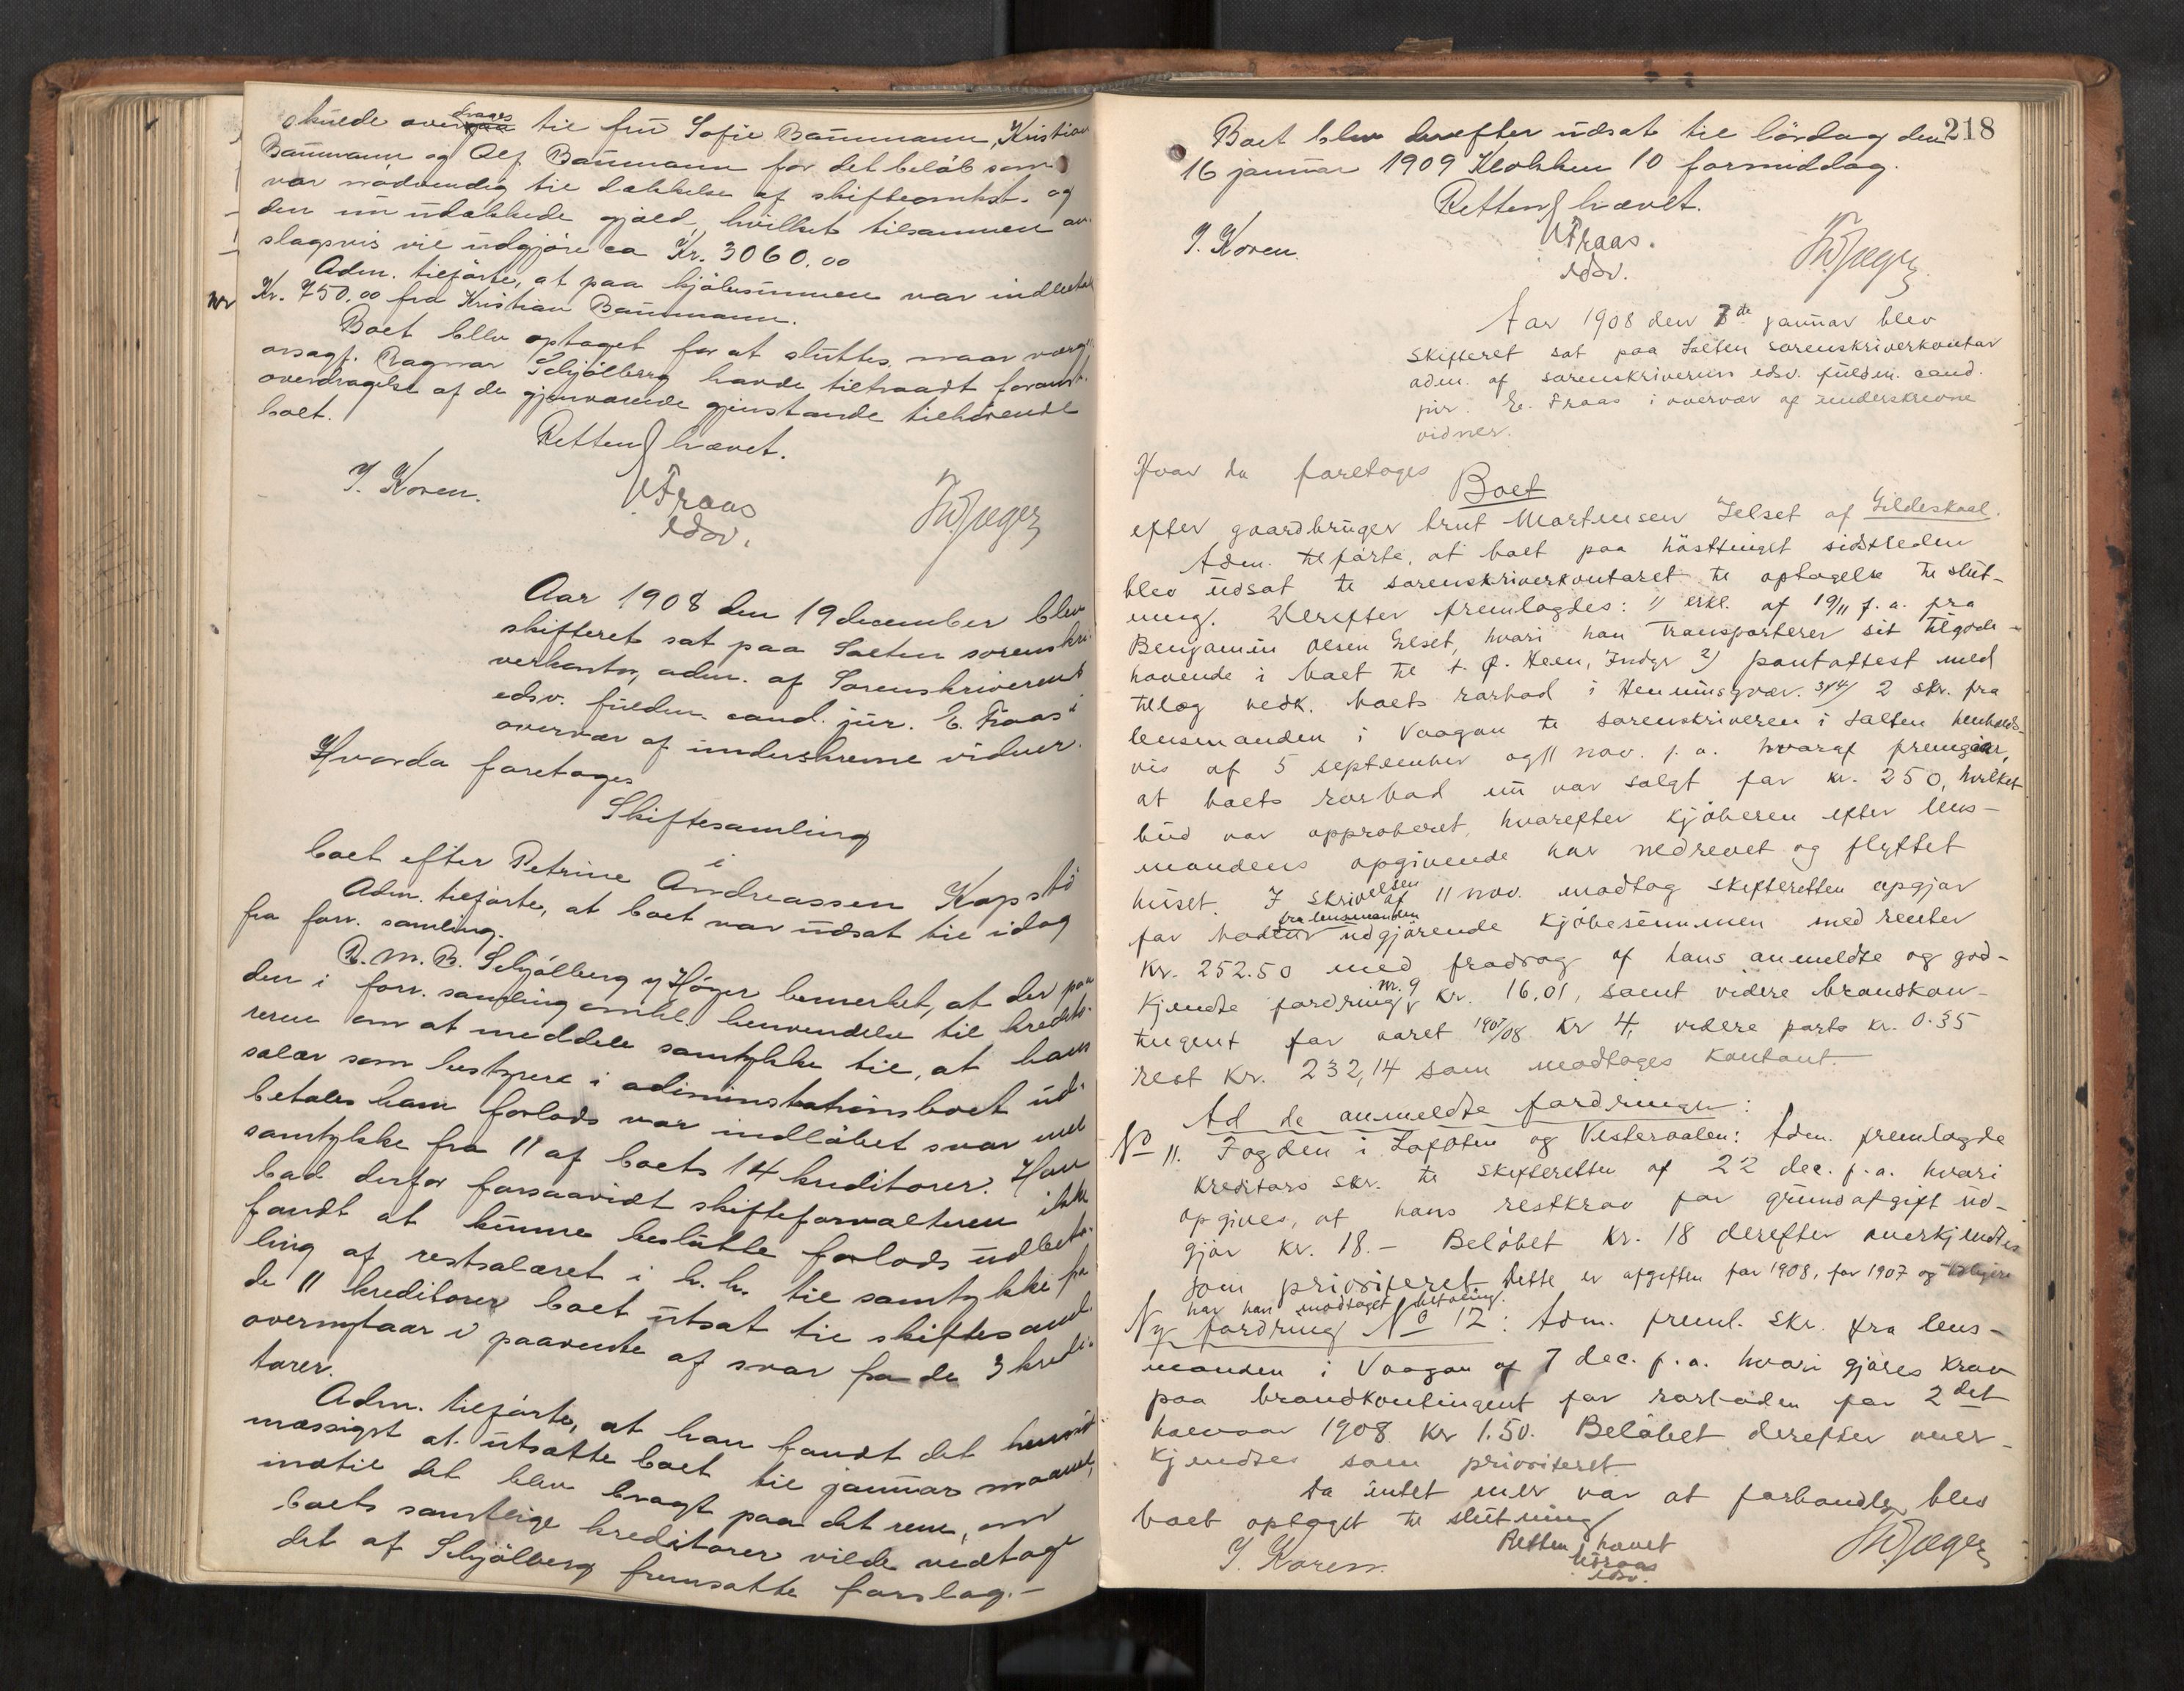 skulde overdrages til fru Sofie Baumann, Kristian
Baumann og Alf Baumann for det beløb som
var nødvendig til dækkelse af skifteomkst. og
den nu udækkede gjæld, hvilket tilsammen an-
slagsvis vil udgjøre ca Kr. 3060.00
Adm. tilførte, at paa kjøbesummen var indbetalt
Kr. 750.00 fra Kristian Baumann.
Boet blev optaget for at sluttes, naar værge
orsagf. Ragnar Schjølberg havde tiltraadt foranst.
overdragelse af de gjenværende gjenstande tilhørende
boet.
Retten hævet.
I. Koren.
E Traas
edsv.
Th. Jæger
Aar 1908 den 19 december blev
skifteret sat paa Salten sorenskri-
verkontor, adm. af Sorenskriverens
edsv. fuldm. cand. jur. E. Traas i
overvær af underskrevne vidner.
Hvorda foretoges
Skiftesamling
i
boet efter Petrine Andreassen Kopstø
Adm. tilførte, at boet var udsat til idag
fra forr. samling.
R. M. B. Schjølberg y Høyer bemerket, at der paa
den i forr. samling omhl. henvendelse til kredito-
rerne om at meddele samtykke til, at hans
salær som bestyrer i administrationsboet ud-
betales ham forlods var indløbet svar med
samtykke fra 11 af boets 14 kreditorer. Han
bad derfor forsaavidt skifteforvalteren ikke
fandt at kunne beslutte forlods udbeta-
ling af restsalæret i h. h. til samtykke fra
de 11 kreditorer boet utsat til skiftesaml.
over nytaar i paavente af svar fra de 3 kredi-
torer.
Adm. tilførte, at han fandt det hensigts-
mæssigst at utsætte boet til januar maaned,
indtil det blev bragt paa det rene, om
boets samtlige kreditorer vilde vedtage
det af Schjølberg fremsatte forslag.-
218
Boet blev derefter udsat til lördag den
16 januar 1909 Klokken 10 formiddag.
Retten hævet.
I. Koren.
E Traas.
edsv.
Th. Jæger
Aar 1908 den 8de januar blev
skifteret sat paa Salten sorenskriverkontor
adm. af sorenskriverens edsv. fuldm. cand.
jur. E. Traas i overvær af underskrevne
vidner.
Hvor da foretoges
Boet
efter gaardbruger Knut Mortensen Jelset af Gildeskaal.
Adm. tilførte, at boet paa hösttinget sidstleden
blev udsat til sorenskriverkontoret til optagelse til slut-
ning. Derefter fremlagdes: 1) erkl. af 19/11 f. a. fra
Benjamin Olsen Elset, hvori han transporterer sit tilgode-
havende i boet til A. Ø. Heen, Indyr 2) pantattest med
tillæg vedk. boets rorbod i Henningsvær. 3)4) 2 skr. fra
lensmanden i Vaagan til sorenskriveren i Salten henholds-
vis af 5 september og 11 nov. f. a. hvoraf fremgaar,
at boets rorbod nu var solgt for kr. 250, hvilket
bud var approberet, hvorefter kjøberen efter lens-
mandens opgivende har nedrevet og flyttet
huset. I skrivelsen af 11 nov. modtog skifteretten opgjør
fra lensmanden
for boden udgjørende kjøbesummen med renter
Kr. 252.50 med fradrag af hans anmeldte og god-
kjendte fordring nr. 9 kr. 16.01, samt videre brandkon-
tingent for aaret 1907/08 Kr 4, videre porto kr. 0.35
rest Kr. 232,14 som modtoges kontant.
Ad de anmeldte fordringer:
No 11. Fogden i Lofoten og Vesteraalen: Adm. fremlagde
kreditors skr. til skifteretten af 22 dec. f. a. hvori
opgives, at hans restkrav for grundafgift ud-
gjør kr. 18.- Beløbet kr. 18 derefter anerkjendtes
som prioriteret. Dette er afgiften for 1908, for 1907 og tidligere
har han modtaget betaling.
Ny fordring No 12: Adm. freml. skr. fra lens-
manden i Vaagan af 7 dec. f. a. hvori gjøres krav
paa brandkontingent for rorboden for 2det
halvaar 1908 kr 1.50. Beløbet derefter aner-
kjendtes som prioriteret.
Da intet mer var at forhandle, blev
boet optaget til slutning
Retten hævet
I. Koren.
E Traas
edsv.
Th. Jæger